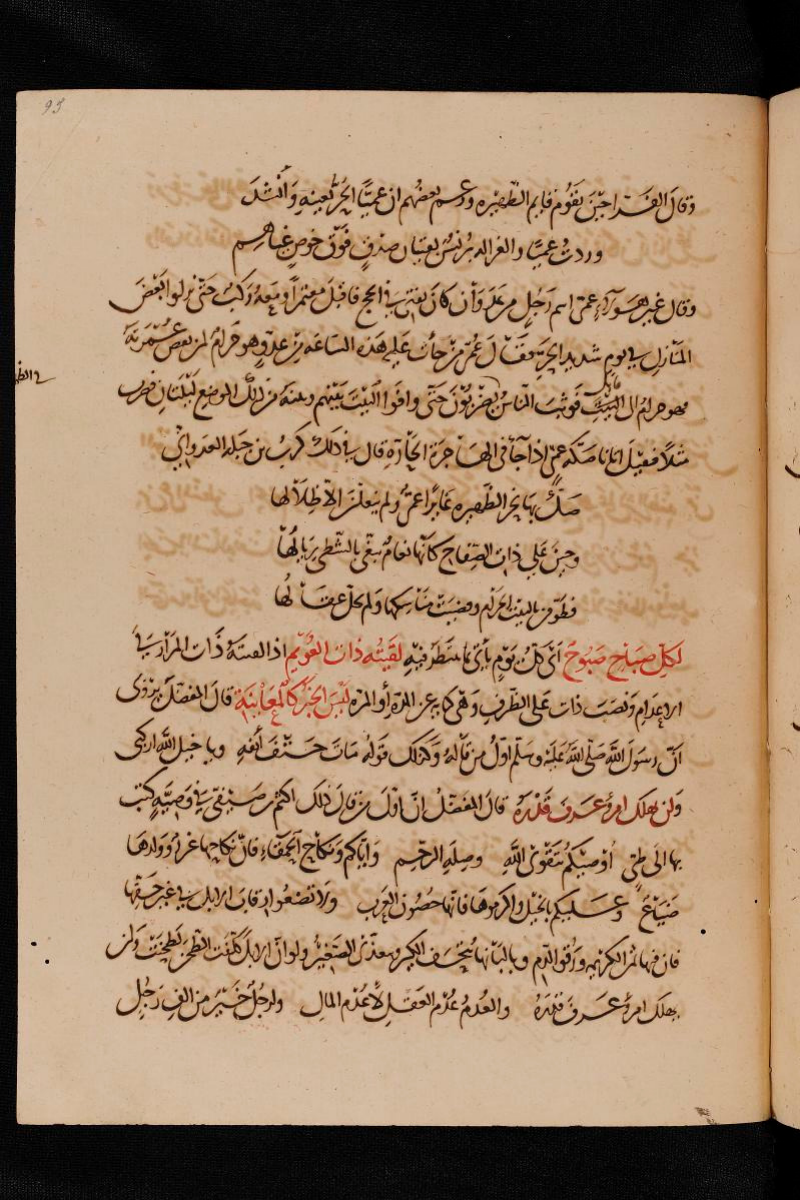 95
وقال الفراء حين يقوم قايم الظهيره وزعم بعضهم ان عميا الحر بعينه وانشد
وردت عميا والغزاله برنس بفتيان صدق فوق خوص عياهم
وقال غير هؤلاء عمي اسم رجل من عدوان كان يفتي في الحج فاقبل معتمرا ومعه ركب حتى نزلوا بعض
المنازل في يوم شديد الحر فقال عمي من جات عليه هذه الساعه من غد وهو حرام لم يقض عمرته
في الظهيره
فهو حرام الى قابل فوثب الناس يضربون حتى وافوا البيت وبينهم وبينه من ذلك الموضع ليلتان فضرب
مثلا فقيل اتانا صكه عمي اذا جا في الهاجرة الحارة قال في ذلك كرب بن جبله العدواني
صك بها نحر الظهيره غايرا عمي ولم ينعلن الا ظلالها
وجين على ذات الصفاح كانها نعام تبغي بالشظي ريالها
فطوفن بالبيت الحرام وقضيت مناسكها ولم تحل عقالها
لكل صباح صبوح اي كل يوم ياتي بما ينتظر فيه لقيته ذات العويم اذا لقيته ذات المرار في
الاعوام ونصب ذات على الظرف وهي كنايه عن المدة أو المرة ليس الخبر كالمعاينة قال المفضل يروى
ان رسول الله صلى الله عليه وسلم اول من قاله وكذلك قوله مات حتف انفه ويا خيل الله اركبي
ولن يهلك امرؤ عرف قدره قال المفضل ان اول من قال ذلك اكثم بن صيفي في وصيه كتب
بها الى طي اوصيكم بتقوى الله وصله الرحم واياكم ونكاح الحمقاء فان نكاحها غرر وولدها
ضياع وعليكم بالخيل واكرموها فانها حصون العرب ولا تضعوا رقاب الابل في غير حقها
فان فيها ثمن الكريمه ورقو الدم وبالبانها يتحف الكبير ويغذى الصغير ولو ان الابل كلفت الطحن لطحنت ولن
يهلك امرؤ عرف قدره والعدم عدم العقل لا عدم المال ولرجل خير من الف رجل